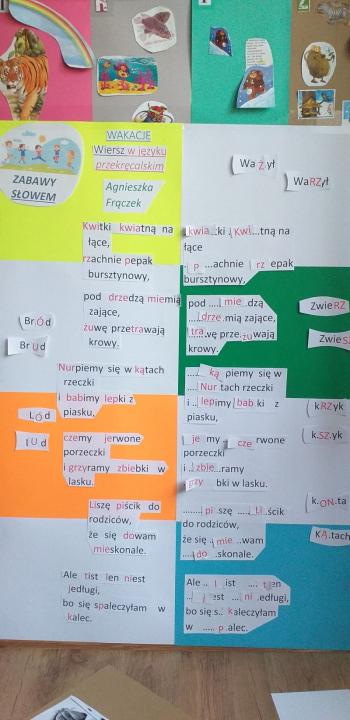 ZABAWY
SŁOWEM
WAKACJE
Wiersz w języku
przekręcalskim
Agnieszka
Frączek
Wa Ż ył
WaRZył
Kwitki kwiatną na
łące,
rzachnie pepak
bursztynowy,
pod drzedzą miemią
zające,
żuwę przetrawają
krowy.
Nurpiemy się w kątach
rzeczki
i babimy lepki z
piasku,
czemy jerwone
porzeczki
i grzyramy zbiebki w
lasku.
Liszę piścik do
rodziców,
że się dowam
mieskonale.
Ale tist len niest
jedługi,
bo się spaleczyłam w
kalec.
BrÓd
BrUd
LÓd
lUd
kwia...tki i Kwi...tną na
łące
p ...achnie i rz epak
bursztynowy,
pod .... mie .dzą
....drze .mią zające,
tra .wę prze..żu wają
krowy.
.... ką piemy się w
... Nur tach rzeczki
i .. lepimy bab ki z
piasku,
je my cze rwone
porzeczki
i .zbie..ramy
grzy bki w lasku.
....... pi szę ....Li..ścik
do rodziców,
że się mie ..wam
....do .skonale.
Ale .. l ist .... ten
.. j .est .... ni .edługi,
bo się s.. kaleczyłam
w ..... p .alec.
ZwieRZ
kRZyk
kSZyk
k.ON.ta
KĄ.tach